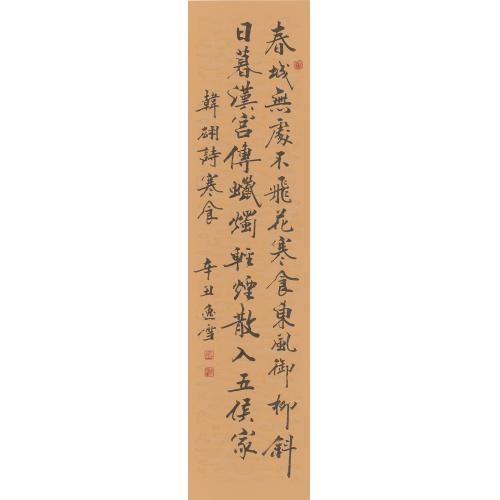 春城無處不飛花寒食東風御柳斜
日暮漢宮傳蠟燭輕煙散入五侯家
韓翃詩寒食 辛丑逸雪